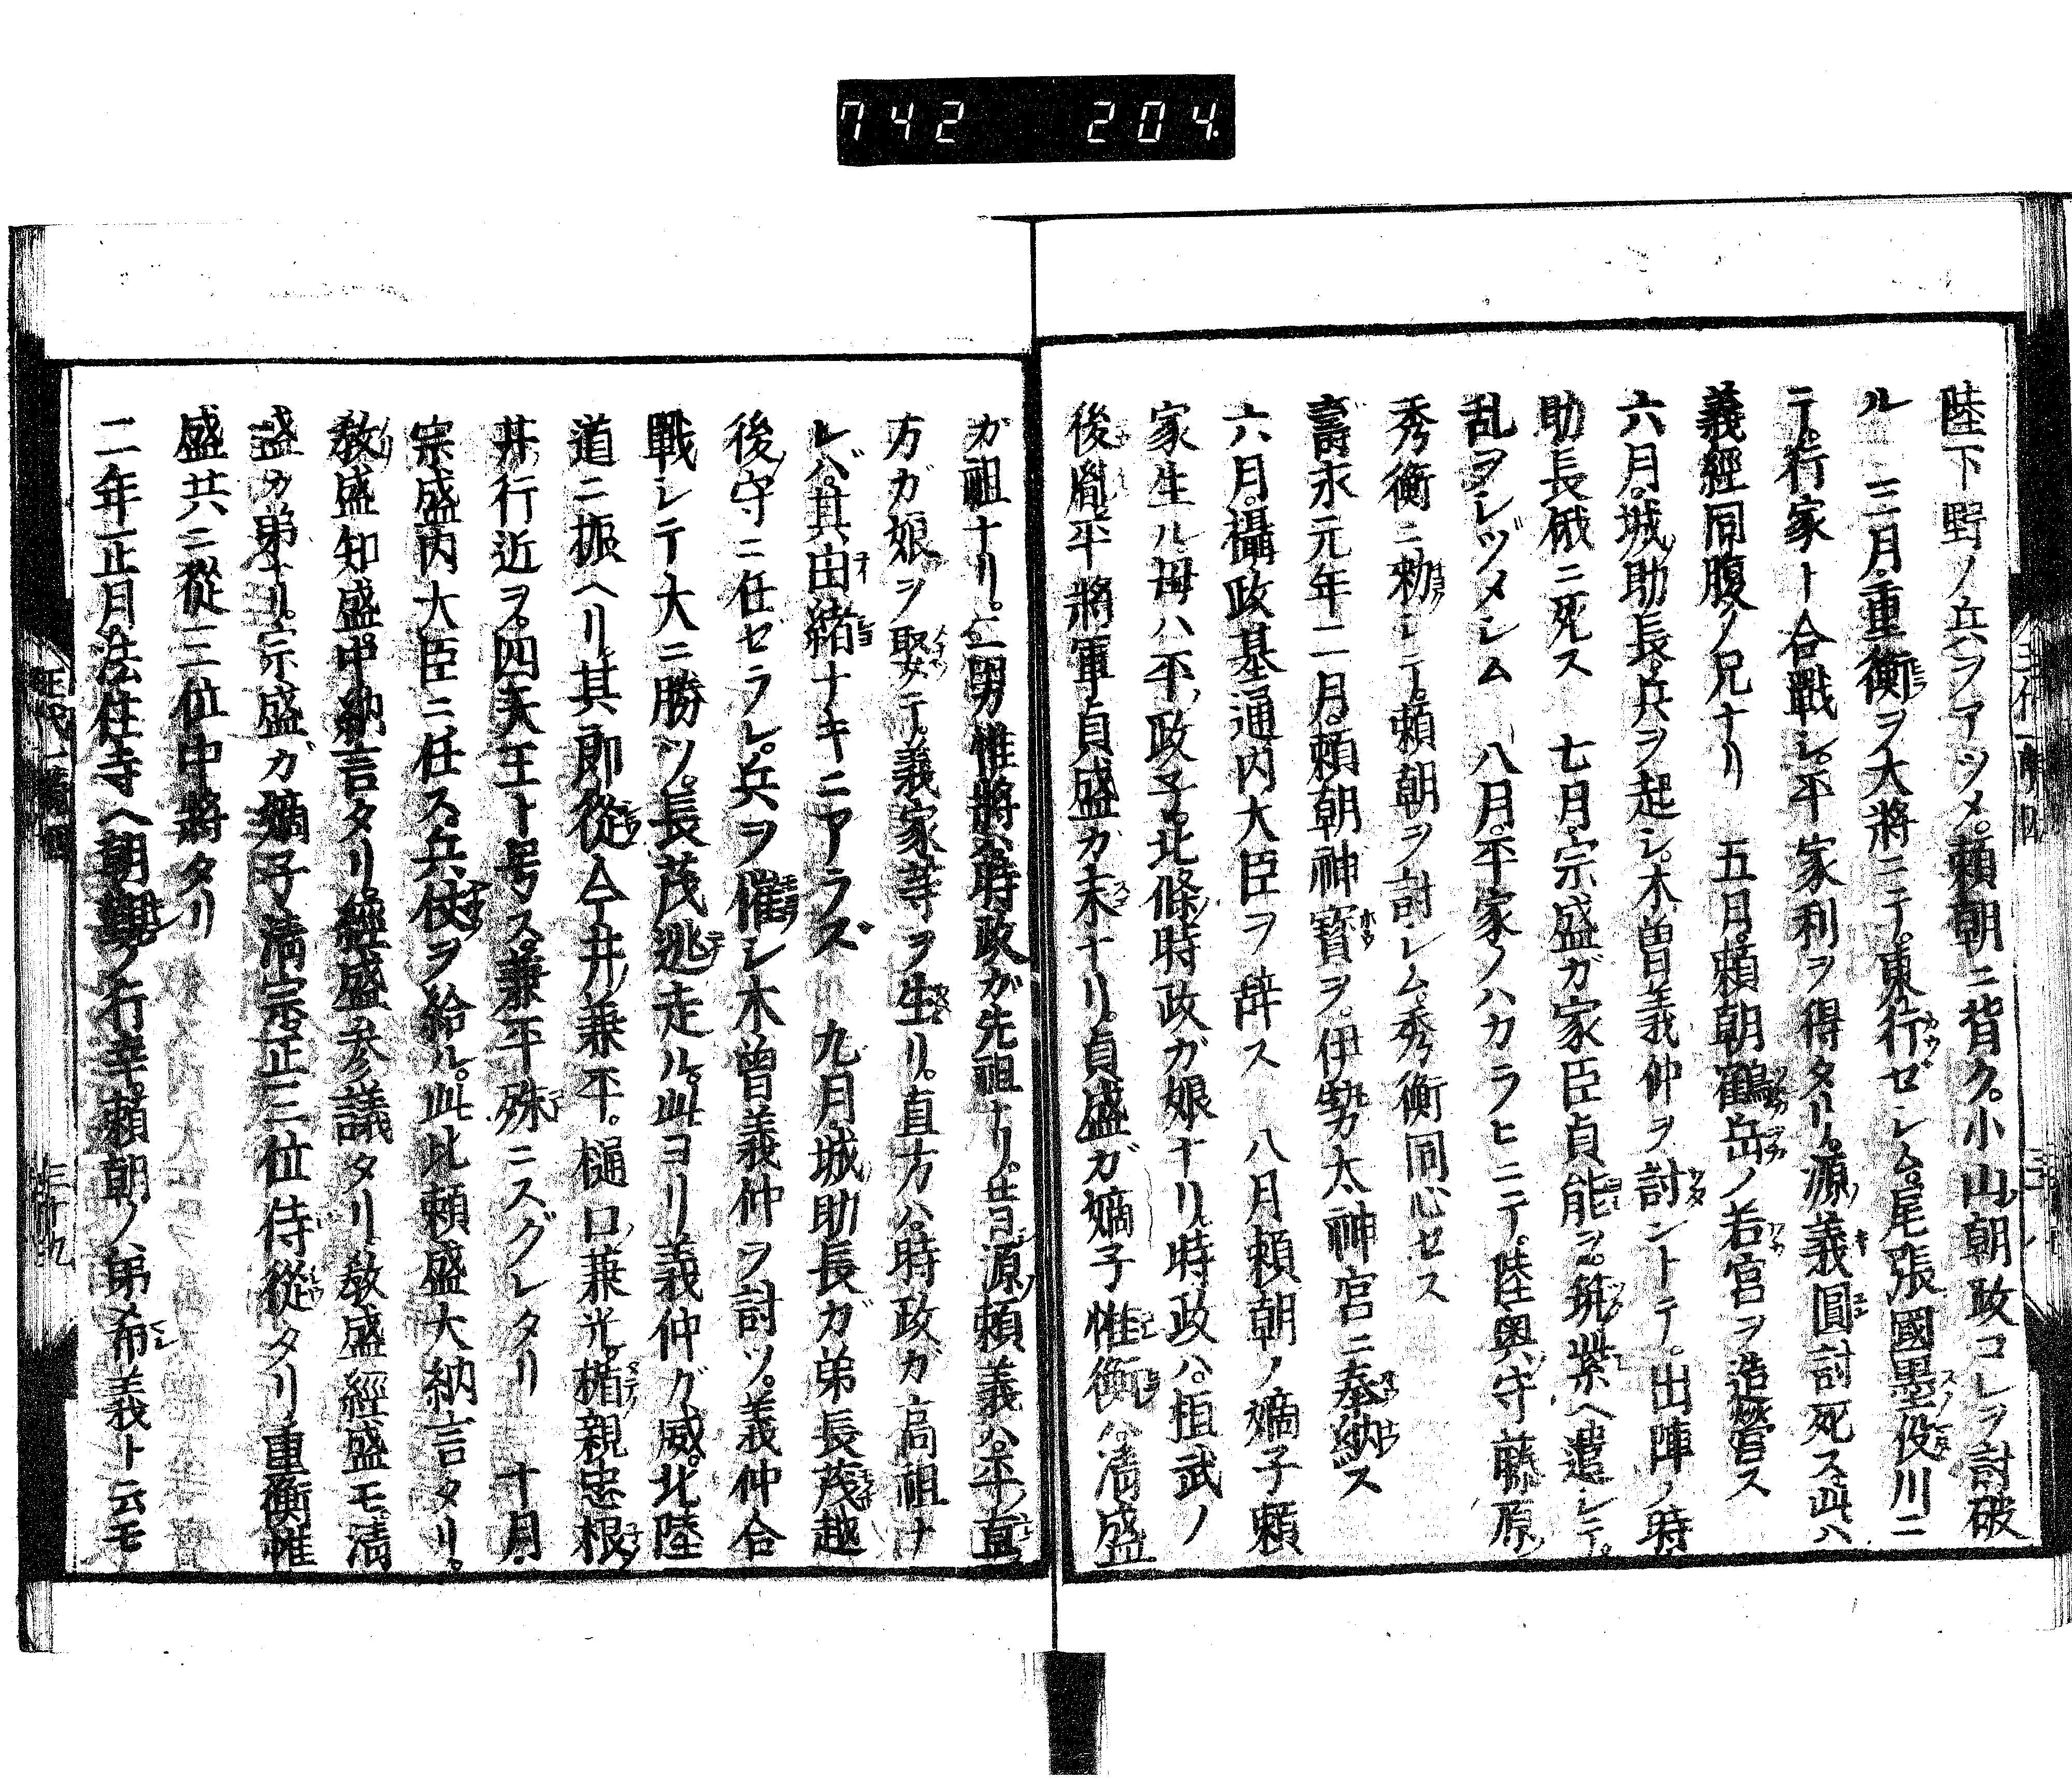 742 204.
陸下野ノ兵ヲアツメ。頼朝ニ背ク。小山朝政コレヲ討破
ル 三月。重衡ヲ大將ニテ。東行ゼシム。尾張國墨俣川ニ
テ。行家ト合戰シ。平家利ヲ得タリ。源義圓討死ス。此ハ
義經同腹ノ兄ナリ 五月。頼朝鶴岳ノ若宮ヲ造營ス
六月。城助長。兵ヲ起シ。木曽義仲ヲ討ントテ。出陣ノ時
助長俄ニ死ス 七月。宗盛ガ家臣貞能ヲ。筑紫ヘ遣シテ。
乱ヲシヅメシム 八月。平家ノハカラヒニテ。陸奥守藤原
秀衡ニ勅シテ。頼朝ヲ討シム。秀衡同心セス
壽永元年二月。頼朝神寳ヲ。伊勢太神宮ニ奉納ス
六月。攝政基通内大臣ヲ辞ス 八月頼朝ノ嫡子頼
家生ル母ハ平政子。北條時政ガ娘ナリ。時政ハ。桓武ノ
後胤平將軍貞盛カ末ナリ。貞盛ガ嫡子惟衡ハ。清盛
ガ祖ナリ。二男惟將ハ。時政ガ先祖ナリ。サヨ源頼義ハ。平直
方ガ娘ヲ娶テ。義家等ヲ生リ。直方ハ。時政ガ高祖ナ
レバ。其由緒ナキニアラズ 九月。城助長ガ弟長茂越
後守ニ任ゼラレ。兵ヲ催シ木曽義仲ヲ討ツ。義仲合
戰シテ大ニ勝ツ。長茂逃走ル。此ヨリ義仲ガ威。北陸
道ニ振ヘリ。其郎從今井兼平。樋口兼光。楯親忠根
井行近ヲ。四天王ト号ス。兼平殊ニスグレタリ 十月。
宗盛内大臣ニ任ス。兵仗ヲ給ル。此比頼盛大納言タリ。
教盛知盛。中納言タリ。經盛参議タリ。教盛經盛モ。清
盛カ弟ナリ。宗盛ガ嫡子清宗。正三位侍從タリ重衡惟
盛共ニ從三位中將タリ
二年正月。法住寺ヘ朝覲ノ行幸。頼朝ノ弟希義ト云モ